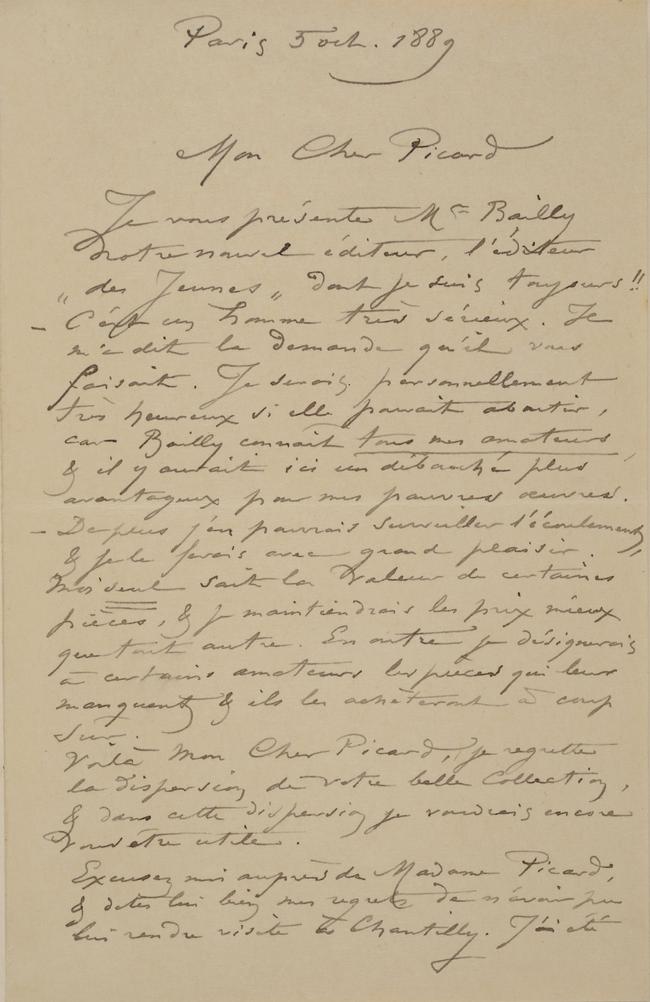 Paris 5 oct. 1889
Mon Cher Picard
Je vous présente Mr Bailly
notre nouvel éditeur, l'éditeur
"des Jeunes" dont je suis toujours !!
– C'est un homme très sérieux. Il
m'a dit la demande qu'il vous
faisait. Je serais personnellement
très heureux si elle pouvait aboutir,
car Bailly connait tous mes amateurs,
& il y aurait ici un débouché plus
avantageux pour mes pauvres œuvres.
– De plus j'en pourrais surveiller l'écoulement,
& je le ferais avec grand plaisir.
Moi seul sait la valeur de certaines
pièces, & je maintiendrais les prix mieux
que tout autre. En outre je désignerais
à certains amateurs les pièces qui leur
manquent & ils les achèteront à coup
sûr.
Voilà mon Cher Picard, je regrette
la dispersion de votre belle Collection,
& dans cette dispersion je voudrais encore
vous être utile.
Excusez moi auprès de Madame Picard,
& dites lui bien mes regrets de n'avoir pu
lui rendre visite à Chantilly. J'ai été